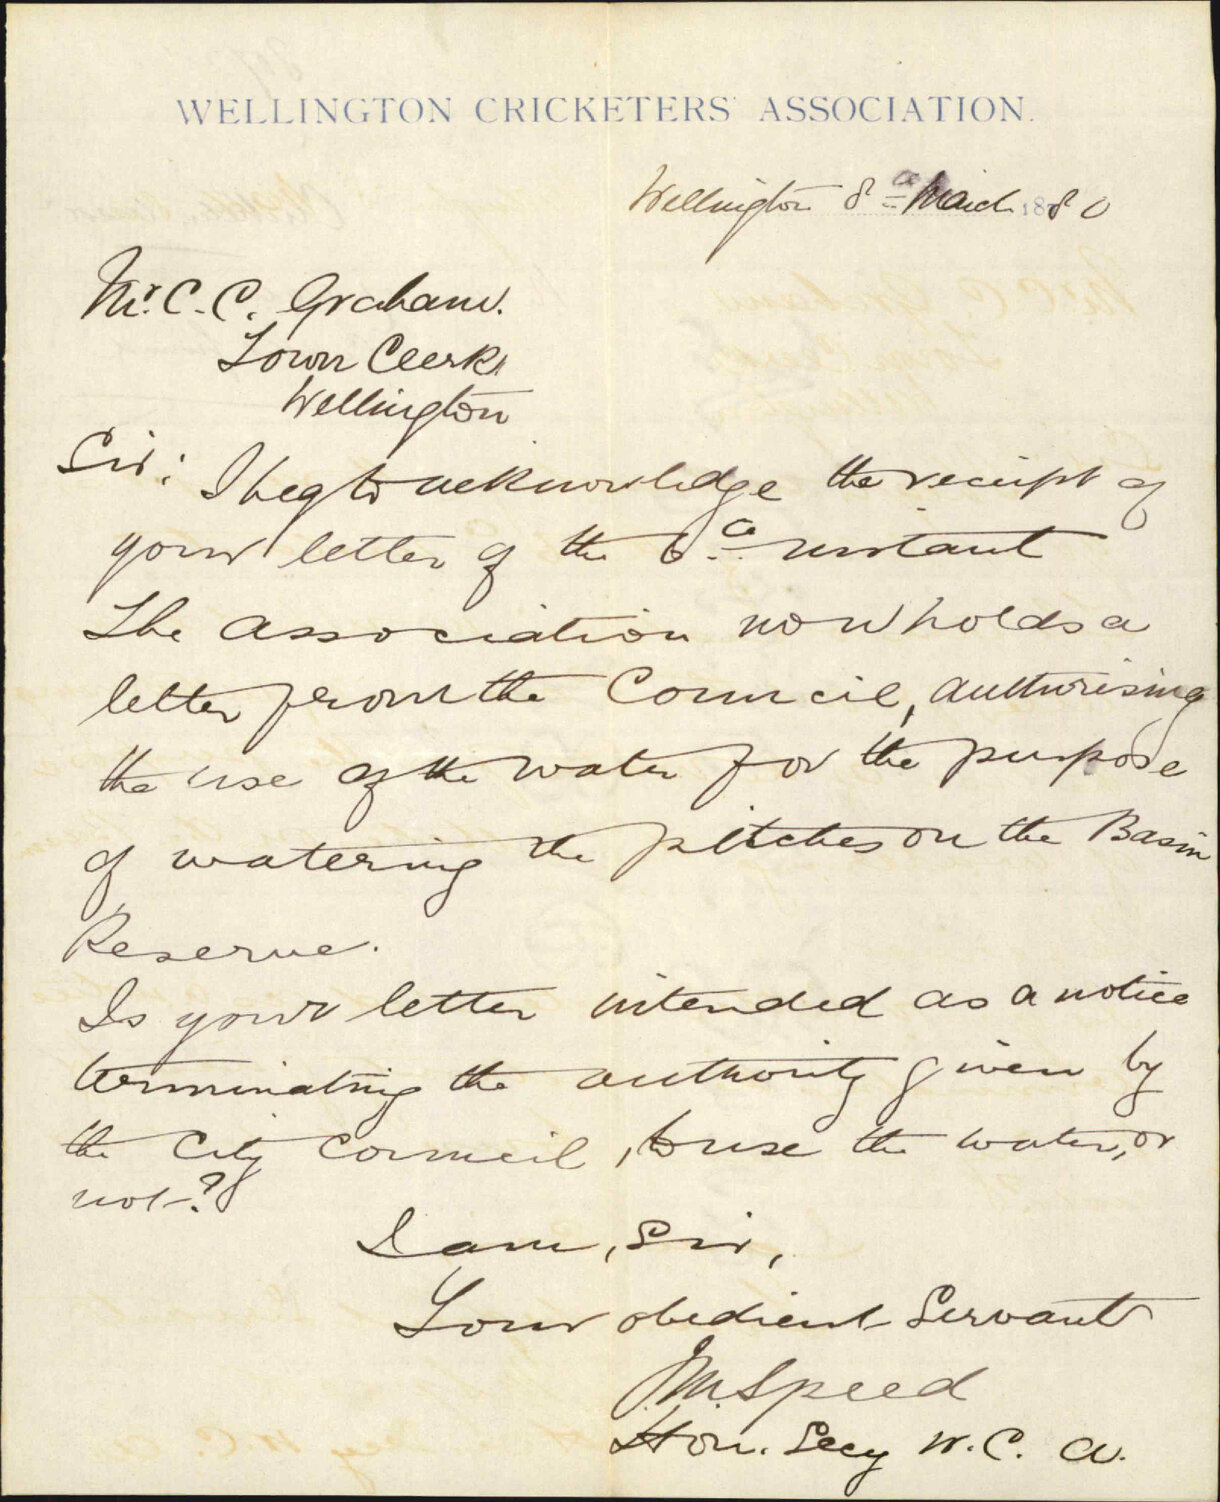 WELLINGTON CRICKETERS' ASSOCIATION.
Wellington 8th March 1880
Mr. C. C. Graham.
Town Clerk,
Wellington
Sir:
I beg to acknowledge the receipt of
your letter of the 6th instant
The Association now holds a
letter from the Council, authorising
the use of the water for the purpose
of watering the pitches on the Basin
Reserve.
Is your letter intended as a notice
terminating the authority given by
the City Council, to use the water, or
not?
I am, Sir,
Your obedient Servant
J.M. Speed
Hon. Secy W. C. A.